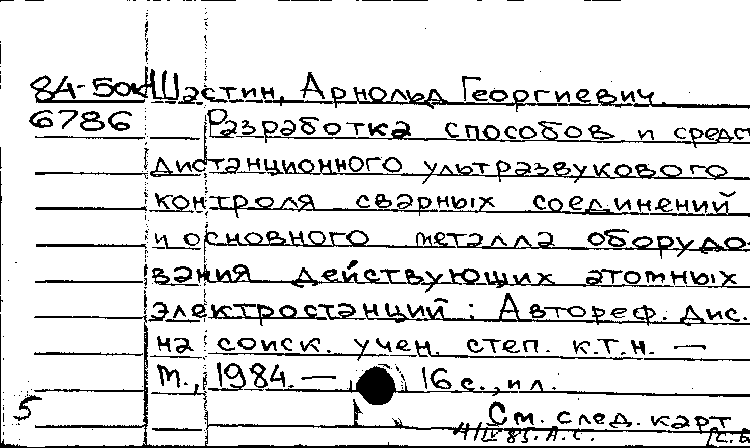 84-50к Шастин, Арнольд Георгиевич.
6786 Разработка способов и средс
дистанционного ультразвукового
контроля сварных соединений
и основного металла оборудо-
вания действующих атомных
электростанций : Автореф. дис.
на соиск. учен. степ. к.т.н. —
М., 1984. — 16 с., ил.
5 См. след. карт